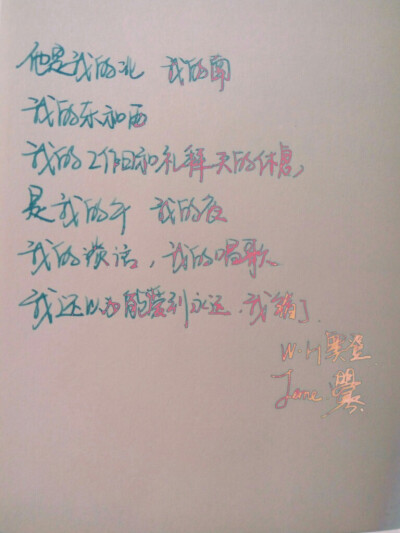 他是我的北 我的南
我的东和西
我的工作日和礼拜天的休息,
是我的午 我的夜
我的谈话,我的唱歌、
我还以为能爱到永远.我错了.
W·H
Jane